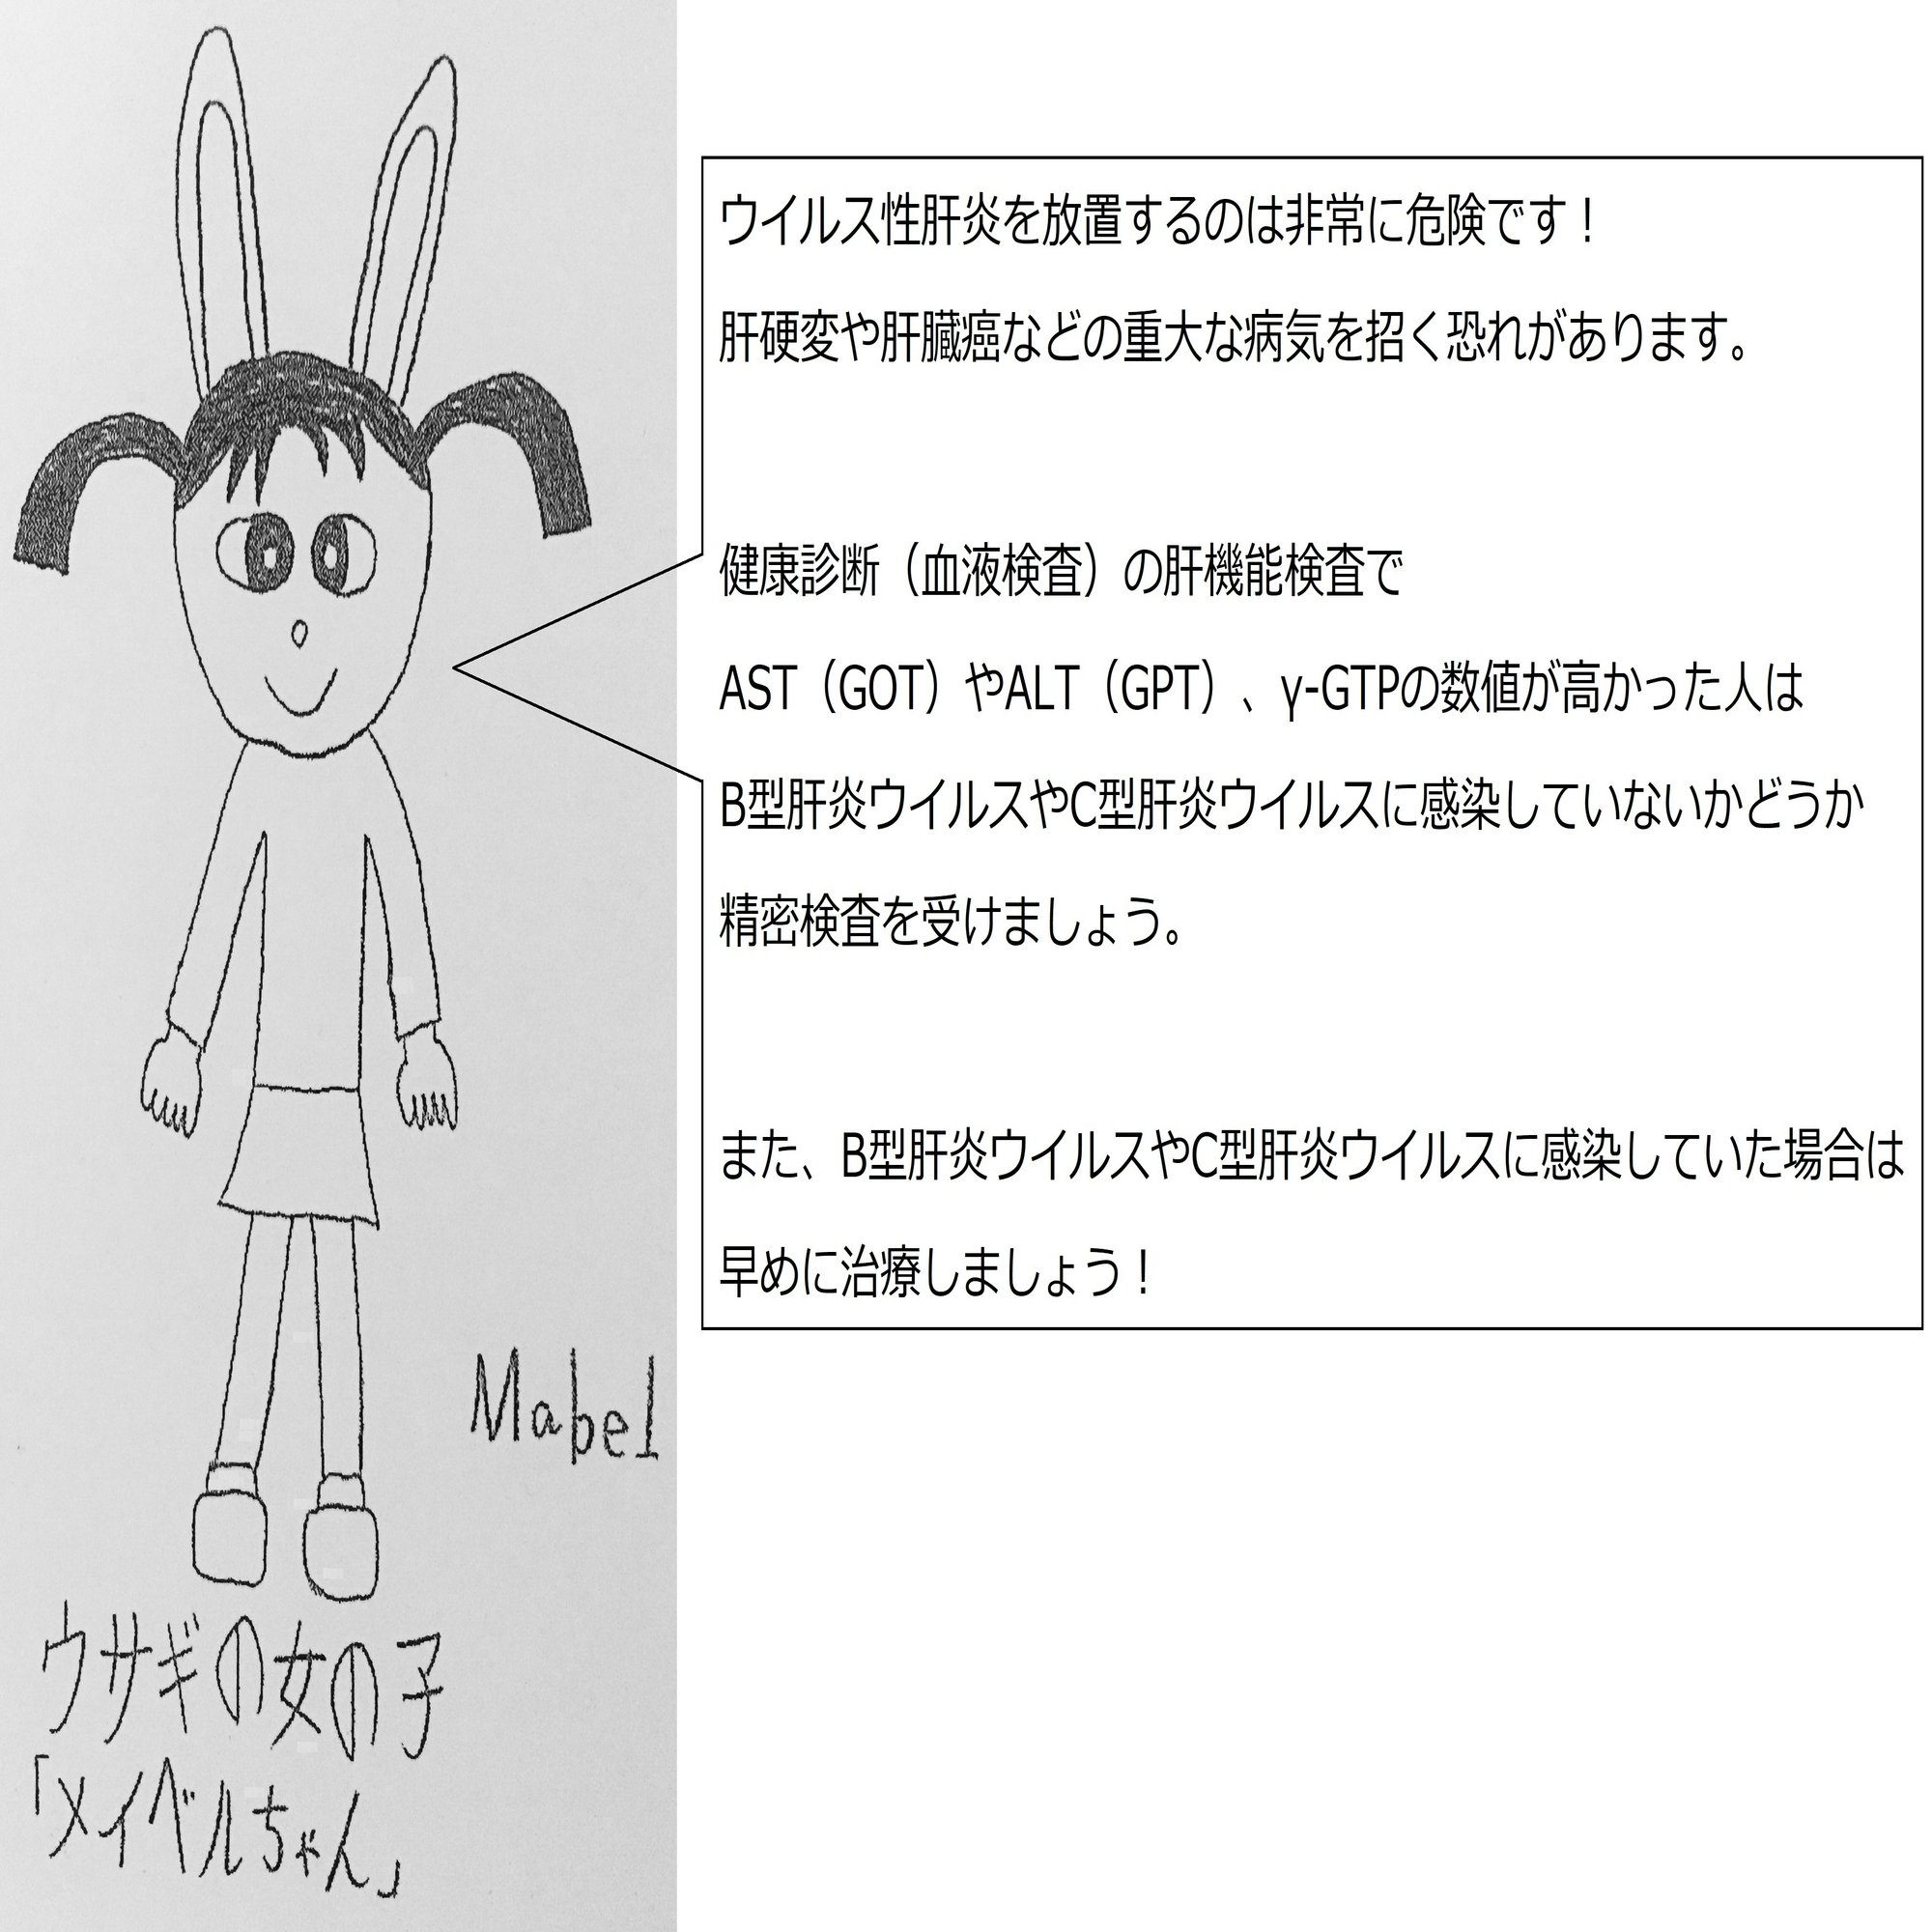 ウイルス性肝炎を放置するのは非常に危険です！
肝硬変や肝臓癌などの重大な病気を招く恐れがあります。
健康診断（血液検査）の肝機能検査で
AST（GOT）やALT（GPT）、γ-GTPの数値が高かった人は
B型肝炎ウイルスやC型肝炎ウイルスに感染していないかどうか
精密検査を受けましょう。
また、B型肝炎ウイルスやC型肝炎ウイルスに感染していた場合は
早めに治療しましょう！
Mabel
ウサギの女の子
「メイベルちゃん」